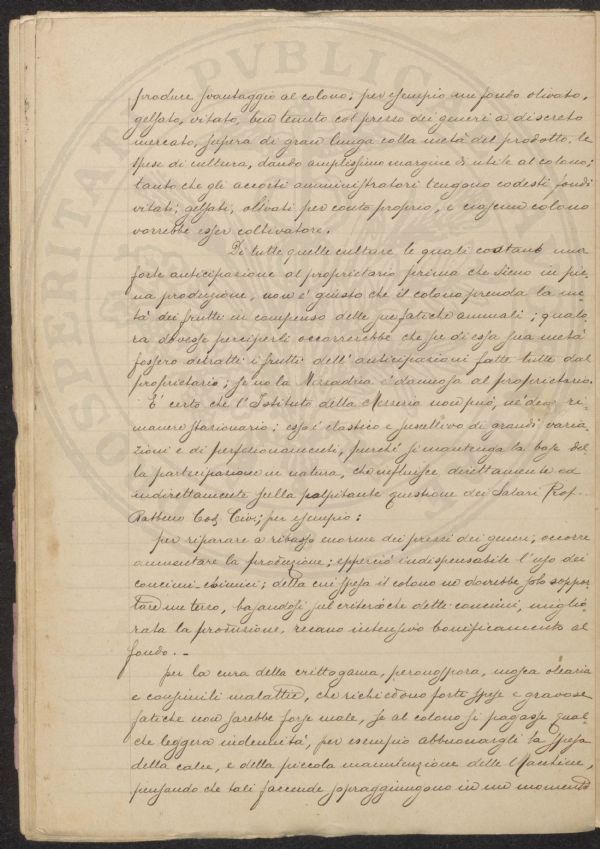 produce svantaggio al colono; per esempio un fondo olivato,
gelsato, vitato, ben tenuto col prezzo dei generi a discreto
mercato, supera di gran lunga colla metà del prodotto, le
spese di cultura, dando amplissimo margine di utile al colono;
tanto che gli accorti amministratori tengono codesti fondi
vitati; gelsati, olivati per conto proprio, e ciascun colono
vorrebbe esser coltivatore.
Di tutte quelle culture le quali costano una
forte anticipazione al proprietario prima che sieno in pie-
na produzione, non è giusto che il colono prenda la me-
tà dei frutti in compenso delle sue fatiche annuali; qualo-
ra dovesse percepirli occorrerebbe che su di essa sua metà
fossero detratti i frutti dell'anticipazioni fatte tutte dal
proprietario; se no la Mezzadria è dannosa al proprietario.
È certo che l'Istituto della Mezzeria non può, nè deve ri-
manere stazionario: esso è elastico e suscettivo di grandi varia-
zioni e di perfezionamenti, purchè si mantenga la base del
la partecipazione in natura, che influisce direttamente ed
indirettamente sulla palpitante questione dei Salari Prof.
Rabbeno Cod. Civ; per esempio:
per riparare a ribasso enorme dei prezzi dei generi, occorre
aumentare la produzione; epperciò indispensabile l'uso dei
concimi chimici; della cui spesa il colono ne dovrebbe solo soppor
tare un terzo, basandosi sul criterio che dette concimi, miglio-
rata la produzione, recano intensivo bonificamento al
fondo. -
per la cura della crittogama, peronospora, mosca olearia
e consimili malattie, che richiedono forte spese e gravose
fatiche non sarebbe forse male, se al colono si pagasse qual-
che leggera indennità, per esempio abbuonargli la spesa
della calce, e della piccola manutenzione delle Macchine,
pensando che tali faccende sopraggiungono in un momento